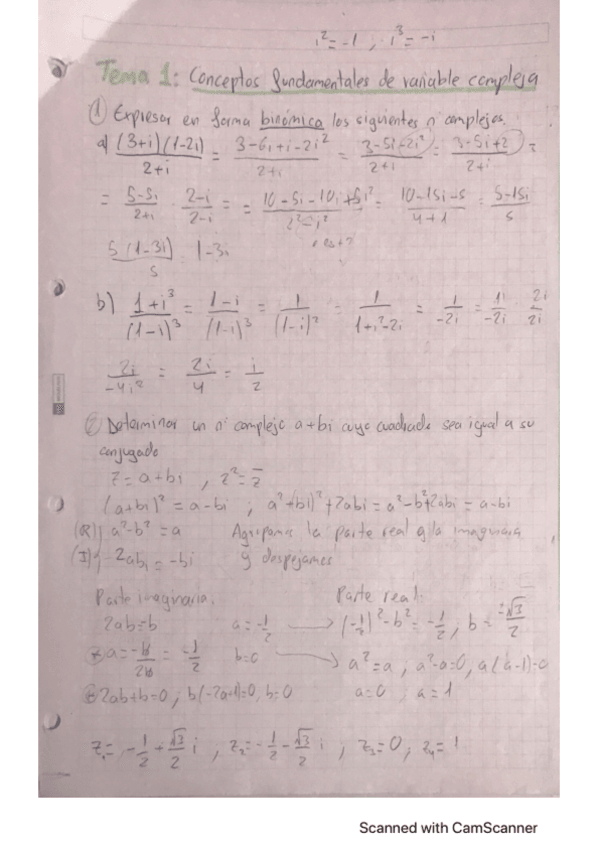 i² = -1 ; i³ = -i
Tema 1: Conceptos fundamentales de variable compleja
① Expresar en forma binómica los siguientes nº complejos.
a) (3+i)(1-2i)/(2+i) = (3-6i+i-2i²)/(2+i) = (3-5i-2i²)/(2+i) = (3-5i+2)/(2+i) =
= (5-5i)/(2+i) · (2-i)/(2-i) = = (10-5i-10i+5i²)/(2²-i²) = (10-15i-5)/(4+1) = (5-15i)/5
5(1-3i)/5 = 1-3i
b) (1+i³)/(1-i)³ = (1-i)/(1-i)³ = 1/(1-i)² = 1/(1+i²-2i) = 1/(-2i) = 1/(-2i) · 2i/2i
2i/(-4i²) = 2i/4 = i/2
② Determinar un nº complejo a+bi cuyo cuadrado sea igual a su
conjugado
z = a+bi , z² = z̅
(a+bi)² = a-bi , a²+(bi)²+2abi = a²-b²+2abi = a-bi
(R) a²-b² = a Agrupamos la parte real y la imaginaria
(I) 2abi = -bi y despejamos
Parte imaginaria. Parte real.
2ab=-b a = -1/2 → (-1/2)²-b² = -1/2 , b = ±√3/2
a = -b/2b = -1/2 b=0 → a² = a , a²-a=0, a(a-1)=0
2ab+b=0 ; b(-2a+1)=0, b=0 a=0 , a=1
z₁ = -1/2 + √3/2 i , z₂ = -1/2 - √3/2 i , z₃ = 0 ; z₄ = 1
Scanned with CamScanner